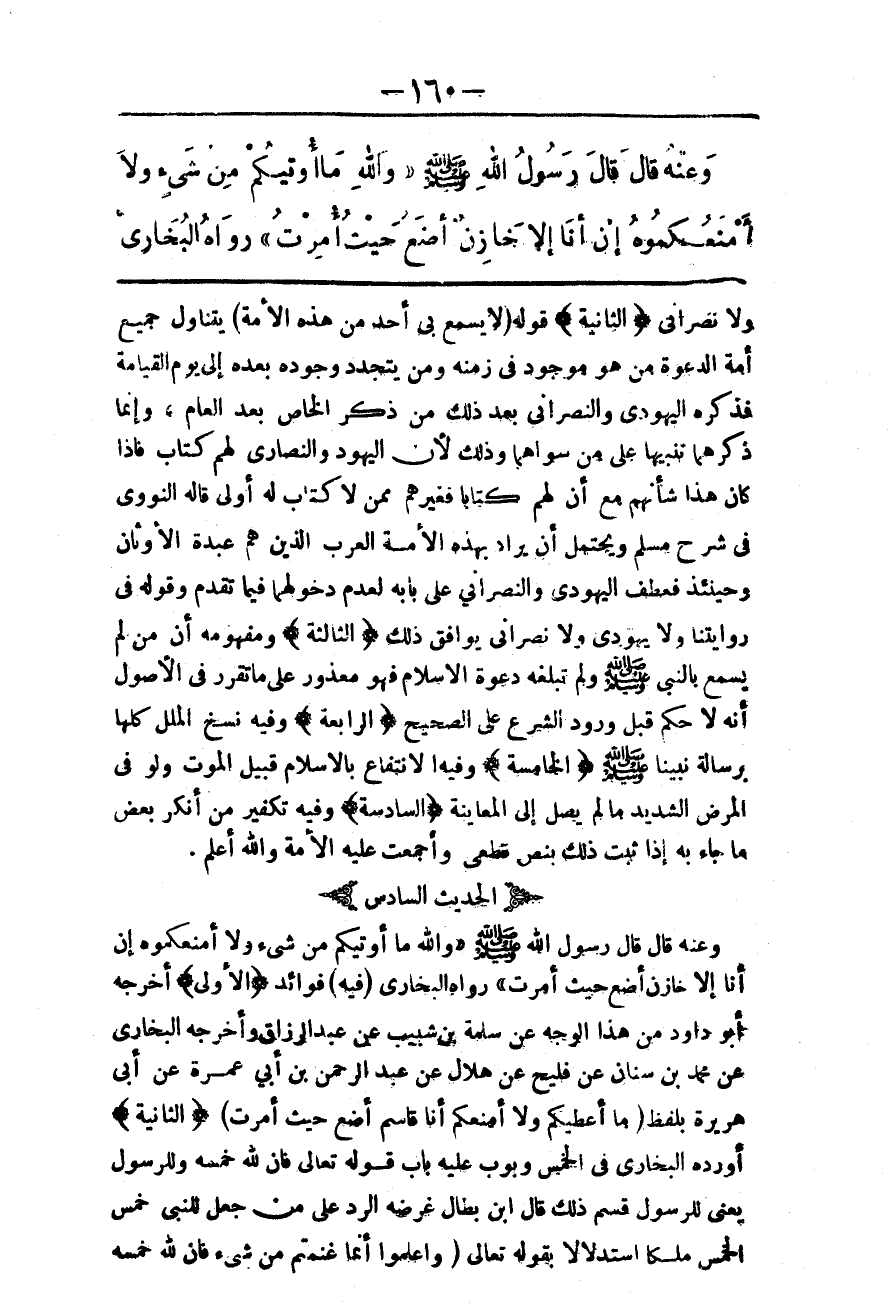 -١٦٠-
وَعَنْهُ قالَ قَالَ رَسُولُ اللهِ ﷺ «واللهِ مَا أُوتِيكُمْ مِنْ شَيْءٍ ولاَ
أَمْنَعُكُمُوهُ إنْ أنَا إلا خَازِنٌ أضَعُ حَيْثُ أُمِرْتُ» رواهُ البُخَارى
ولا نصرانى ﴿ الثانية ﴾ قوله(لايسمع بى أحد من هذه الأمة) يتناول جميع
أمة الدعوة من هو موجود فى زمنه ومن يتجدد وجوده بعده إلى يوم القيامة
فذكره اليهودى والنصرانى بعد ذلك من ذكر الخاص بعد العام ، وإنما
ذكرهما تنبيها على من سواهما وذلك لأن اليهود والنصارى لهم كتاب فاذا
كان هذا شأنهم مع أن لهم كتابا فغيرهم ممن لا كتاب له أولى قاله النووى
فى شرح مسلم ويحتمل أن يراد بهذه الأمة العرب الذين هم عبدة الأوثان
وحينئذ فعطف اليهودى والنصراني على بابه لعدم دخولهما فيما تقدم وقوله فى
روايتنا ولا يهودى ولا نصرانى يوافق ذلك ﴿ الثالثة ﴾ ومفهومه أن من لم
يسمع بالنبي ﷺ ولم تبلغه دعوة الاسلام فهو معذور على ماتقرر فى الأصول
أنه لا حكم قبل ورود الشرع على الصحيح ﴿ الرابعة ﴾ وفيه نسخ الملل كلها
برسالة نبينا ﷺ ﴿ الخامسة ﴾ وفيه الانتفاع بالاسلام قبيل الموت ولو فى
المرض الشديد مالم يصل إلى المعاينة ﴿السادسة﴾ وفيه تكفير من أنكر بعض
ما جاء به إذا ثبت ذلك بنص قطعى وأجمعت عليه الأمة والله أعلم .
الحديث السادس
وعنه قال قال رسول الله ﷺ «والله ما أوتيكم من شىء ولا أمنعكموه إن
أنا إلا خازن أضع حيث أمرت» رواه البخارى (فيه) فوائد ﴿الأولى﴾ أخرجه
أبو داود من هذا الوجه عن سلمة بن شبيب عن عبدالرزاق وأخرجه البخارى
عن محمد بن سنان عن فليح عن هلال عن عبد الرحمن بن أبي عمرة عن أبى
هريرة بلفظ( ما أعطيكم ولا أمنعكم أنا قاسم أضع حيث أمرت) ﴿ الثانية ﴾
أورده البخارى فى الخمس وبوب عليه باب قوله تعالى فان لله خمسه وللرسول
يعنى للرسول قسم ذلك قال ابن بطال غرضه الرد على من جعل للنبي خمس
الخمس ملكا استدلالا بقوله تعالى ( واعلموا أنما غنمتم من شىء فان لله خمسه